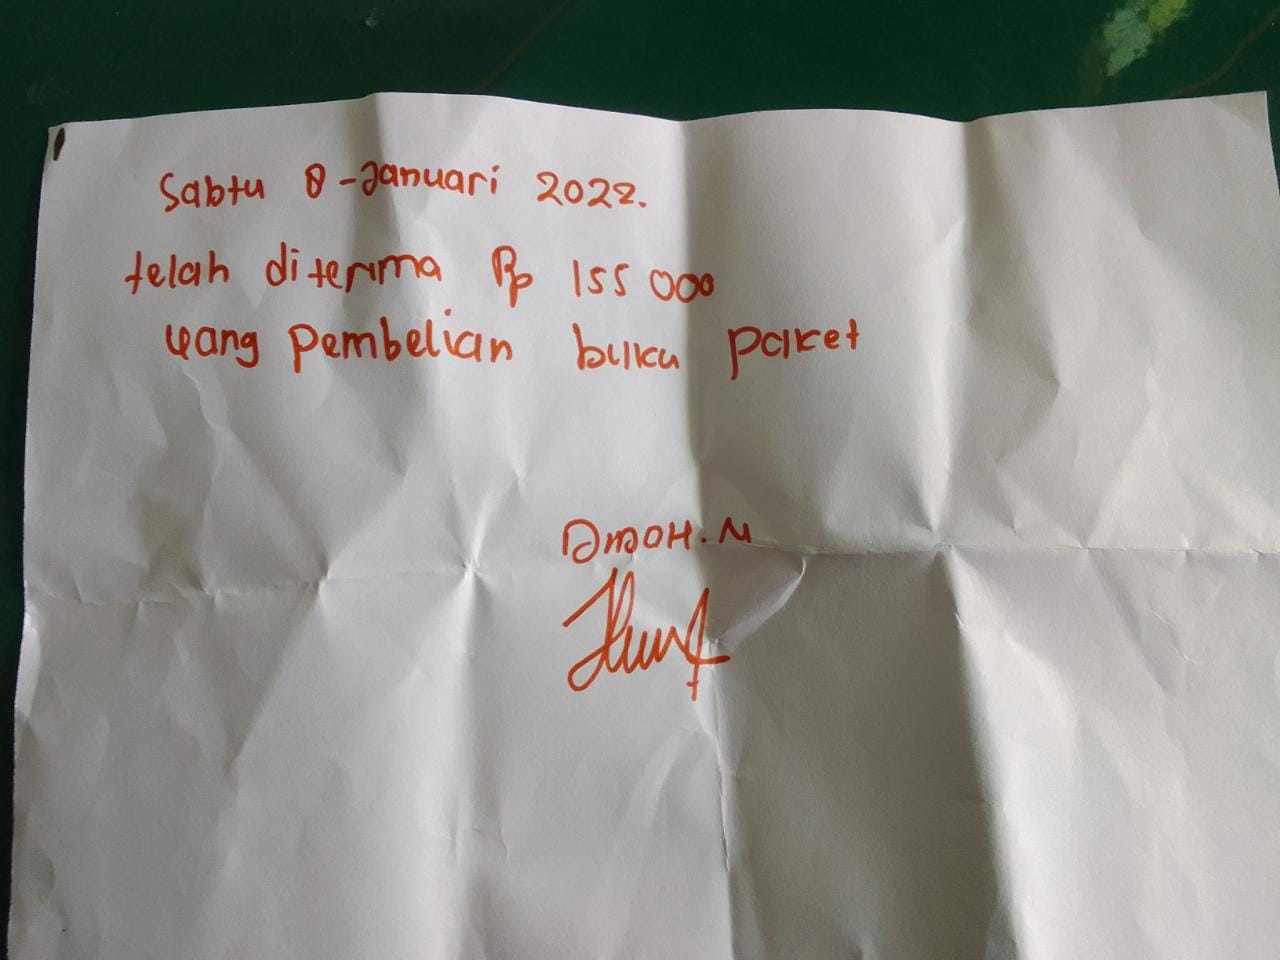 Sabtu 8 - Januari 2022.
telah diterima Rp 155 000
yang pembelian buku paket